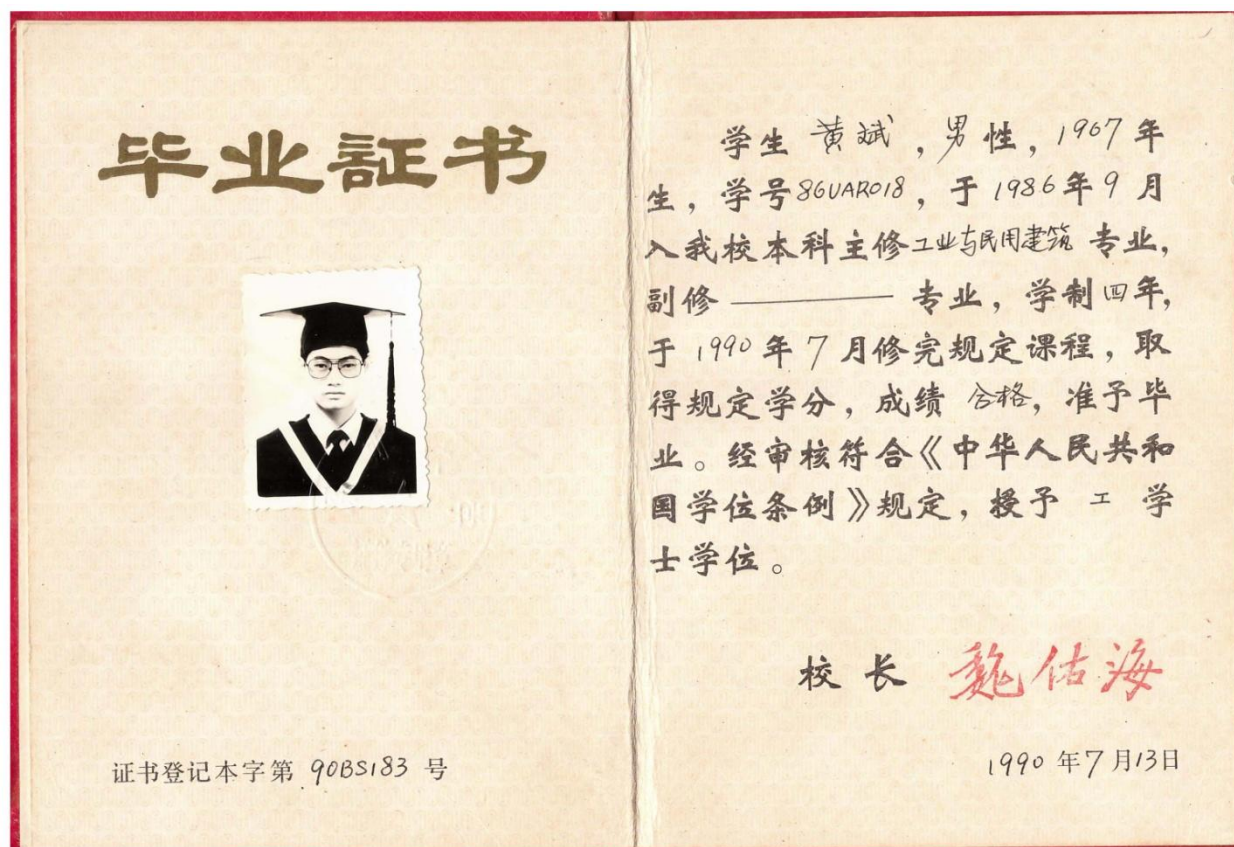 毕业証书
证书登记本字第 90BS183 号
学生 黄斌 ，男性，1967年
生，学号86UAR018，于1986年9月
入我校本科主修工业与民用建筑 专业，
副修 ———— 专业，学制四年，
于 1990年7月修完规定课程，取
得规定学分，成绩 合格，准予毕
业。经审核符合《中华人民共和
国学位条例》规定，授予 工 学
士学位。
校长 魏佑海
1990年7月13日